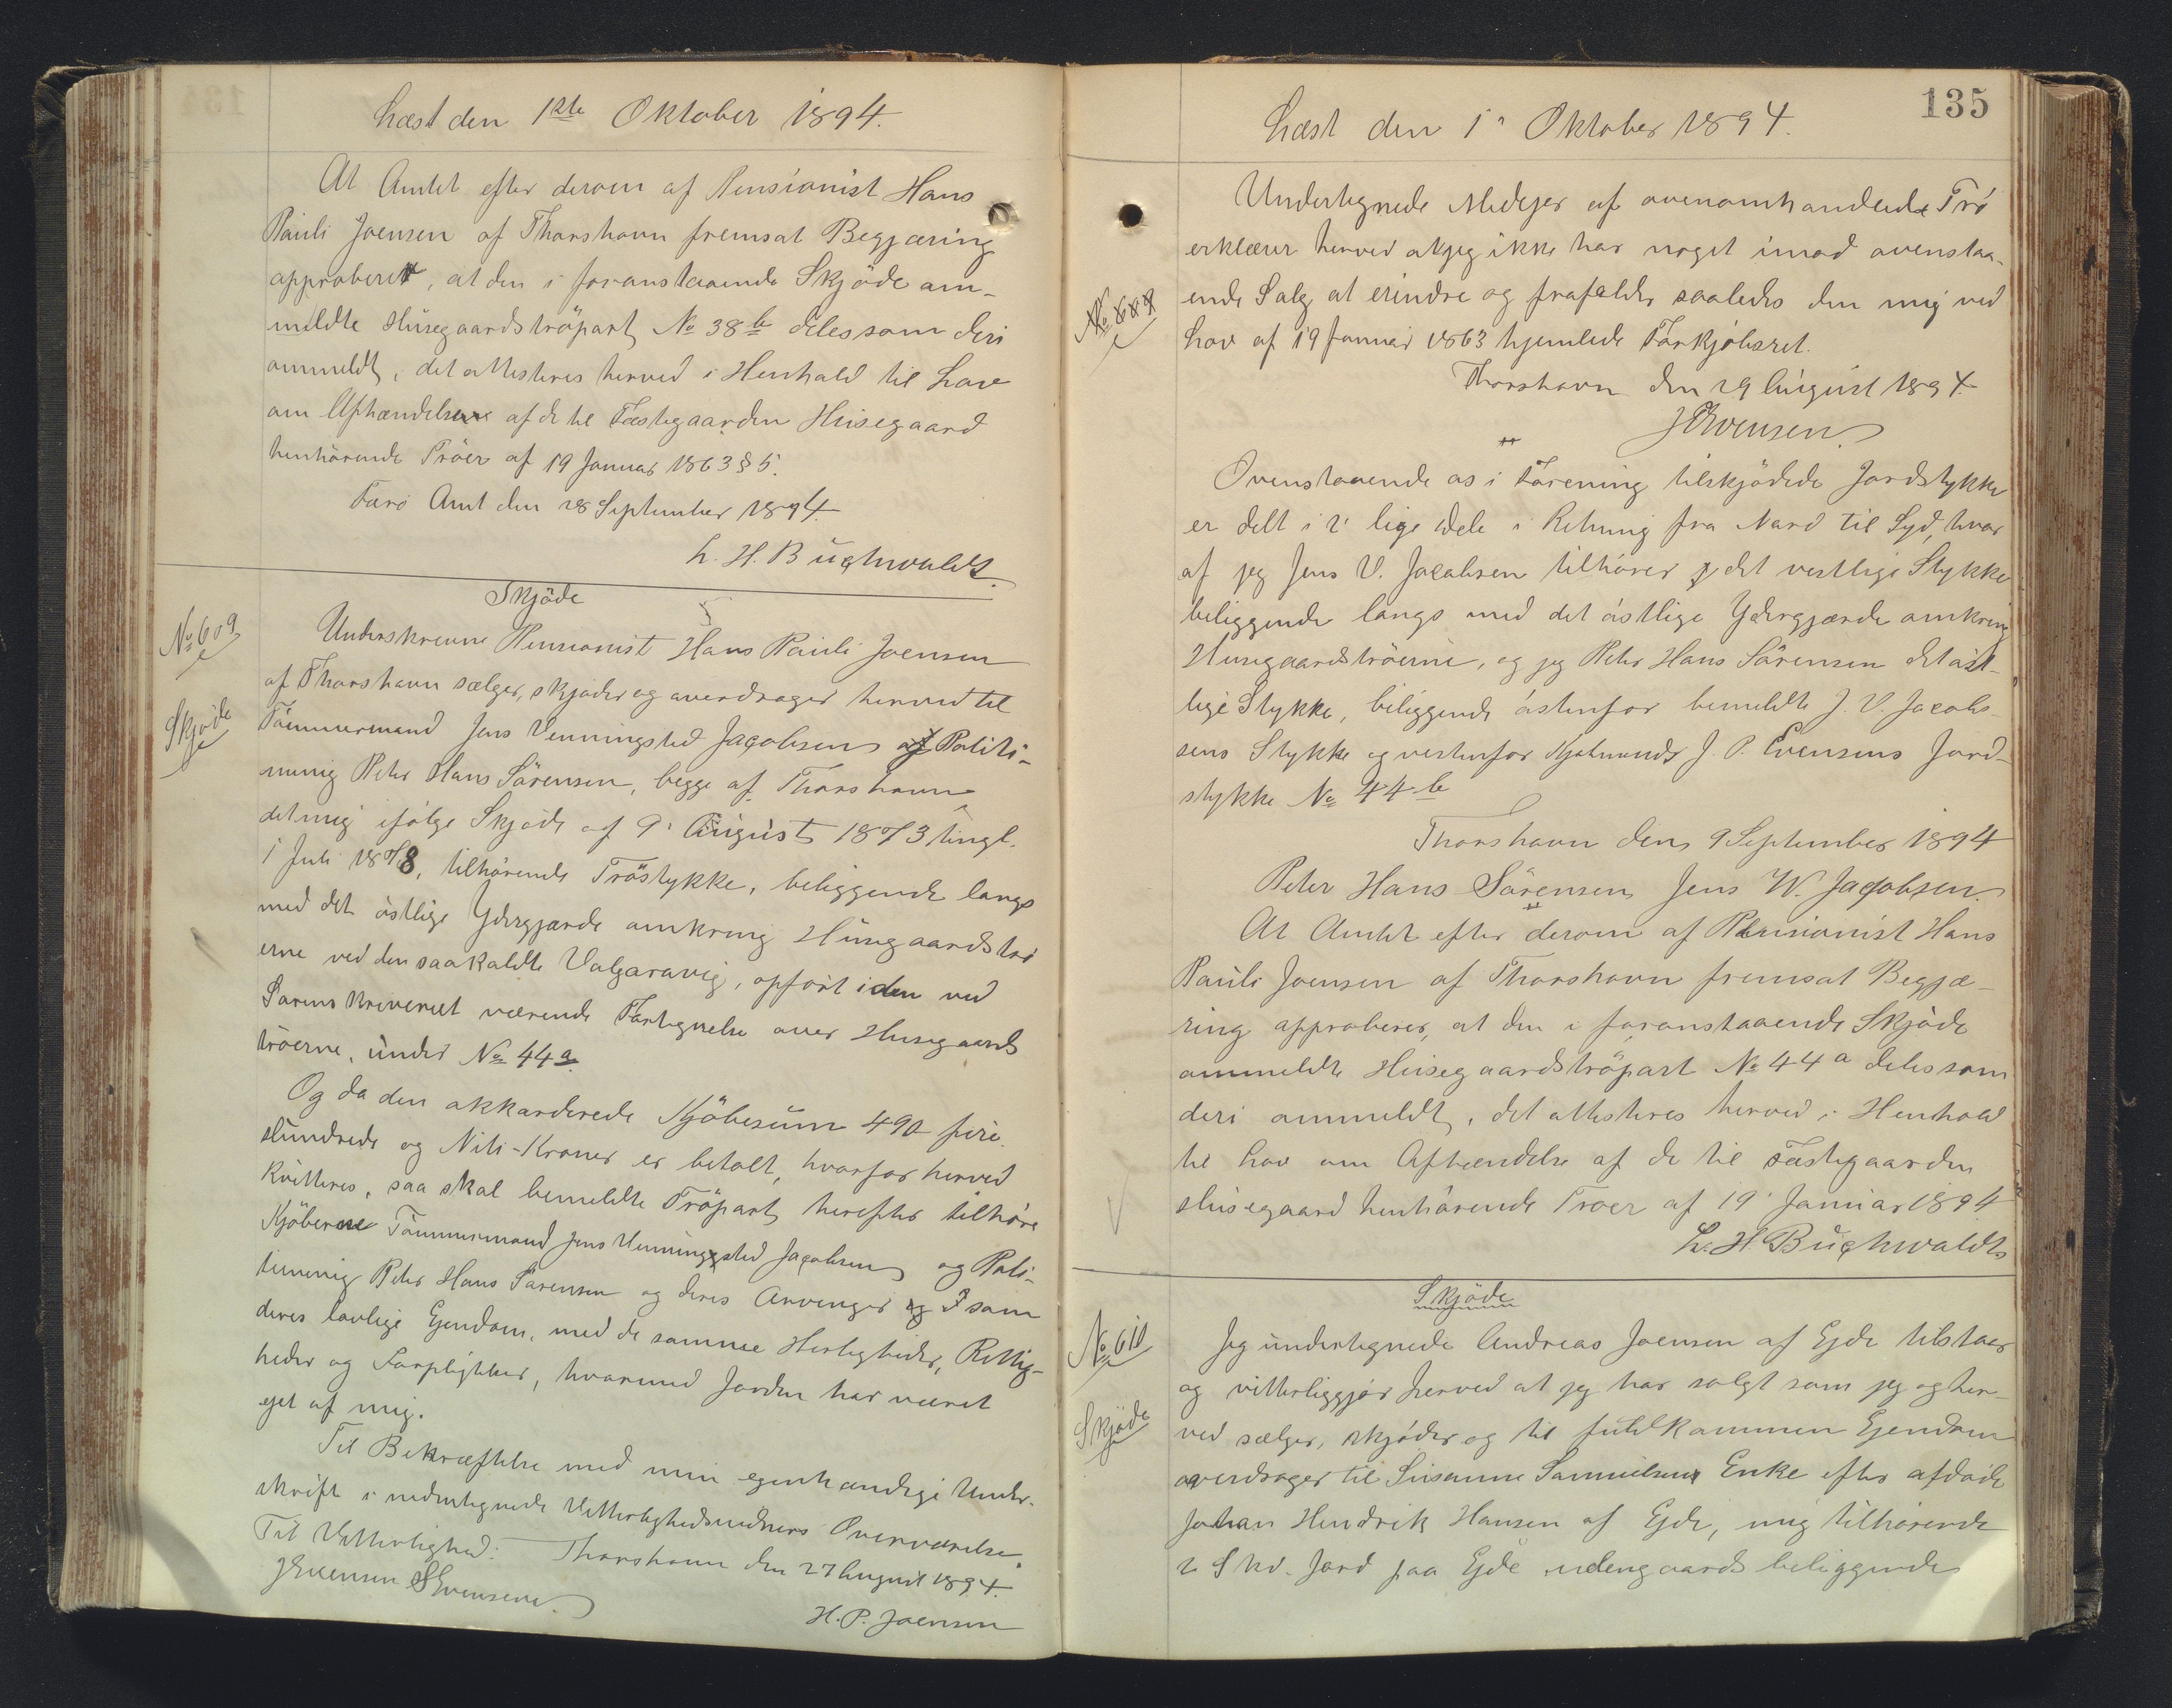 Læst den 1ste Oktober 1894.
At Amtet efter derom af Pensionist Hans
Pauli Joensen af Thorshavn fremsat Begjæring
approberet, at den i foranstaaende Skjöde om-
meldte Husegaardströpart No 38b deles som deri
ommeldt, det attesteres herved i Henhold til Lov
om Afhændelsen af de til Fæstegaarden Husegaard
henhörende Tröer af 19 Januar 1863 § 5.
Færö Amt den 28 September 1894.
L. H. Buchwaldt.
Skjöde
No 609
Skjöde
Underskrevne Pensionist Hans Pauli Joensen
af Thorshavn sælger, skjöder og overdrager herved til
Tömmermand Jens Venningsted Jacobsen og Politi-
munig Peter Hans Sörensen, begge af Thorshavn
det mig ifölge Skjöde af 9' August 1873 tingl.
1 Juli 1878, tilhörende Tröstykke, beliggende langs
med det östlige Ydergjærde omkring Husegaardströ
erne ved den saakaldte Valgaravig, opfört i den ved
Sorenskriveriet værende Fortegnelse over Husegaards
tröerne, under No 44a.
Og da den akkorderede Kjöbesum 490 fire
Hundrede og Niti-Kroner er betalt, hvorfor herved
kvitteres, saa skal bemeldte Tröpart herefter tilhöre
Kjöberne Tömmermand Jens Venningsted Jacobsen og Poli-
timunig Peter Hans Sörensen og deres Arvinger som
deres lovlige Ejendom, med de samme Herligheder, Rettig-
heder og Forpligtelser, hvormed Jorden har været
ejet af mig.
Til Bekræftelse med min egenhændige Under-
skrift i nedentegnede Vitterlighedsvidners Overværelse.
Til Vitterlighed: Thorshavn den 27 August 1894.
JEvensen SEvensen
H. P. Joensen
135
Læst den 1' Oktober 1894.
Undertegnede Medejer af ovenomhandlede Trö
erklærer herved at jeg ikke har noget imod ovenstaa-
ende Salg at erindre og frafalder saaledes den mig ved
Lov af 19 Januar 1863 hjemlede Forkjöbsret.
Thorshavn den 29 August 1894.
JEvensen
Ovenstaaende os i Forening tilskjödede Jordstykke
er delt i 2 lige Dele i Retning fra Nord til Syd, hvor
af jeg Jens V. Jacobsen tilhörer det vestlige Stykke
beliggende langs med det östlige Ydergjærde omkring
Husegaardströerne, og jeg Peter Hans Sörensen det öst-
lige Stykke, beliggende östenfor bemeldte J. V. Jacob-
sens Stykke og vestenfor Kjöbmand J. P. Evensens Jord-
stykke No 44b
Thorshavn den 9 September 1894
Peter Hans Sörensen Jens W. Jacobsen.
At Amtet efter derom af Pensionist Hans
Pauli Joensen af Thorshavn fremsat Begjæ-
ring approberes, at den i foranstaaende Skjöde
ommeldte Husegaardströpart No 44a deles som
deri ommeldt, det attesteres herved i Henhold
til Lov om Afhændelse af de til Fæstegaarden
Husegaard henhörende Tröer af 19' Januar 1894
L. H. Buchwaldt
Skjöde
No 610
Skjöde
Jeg undertegnede Andreas Joensen af Ejde tilstaar
og vitterliggjör herved at jeg har solgt som jeg og her-
ved sælger, skjöder og til fuldkommen Ejendom
overdrager til Susanne Samuelsen Enke efter afdöde
Johan Hendrik Hansen af Ejde, mig tilhörende
2 Skd. Jord paa Ejde udengaards beliggende